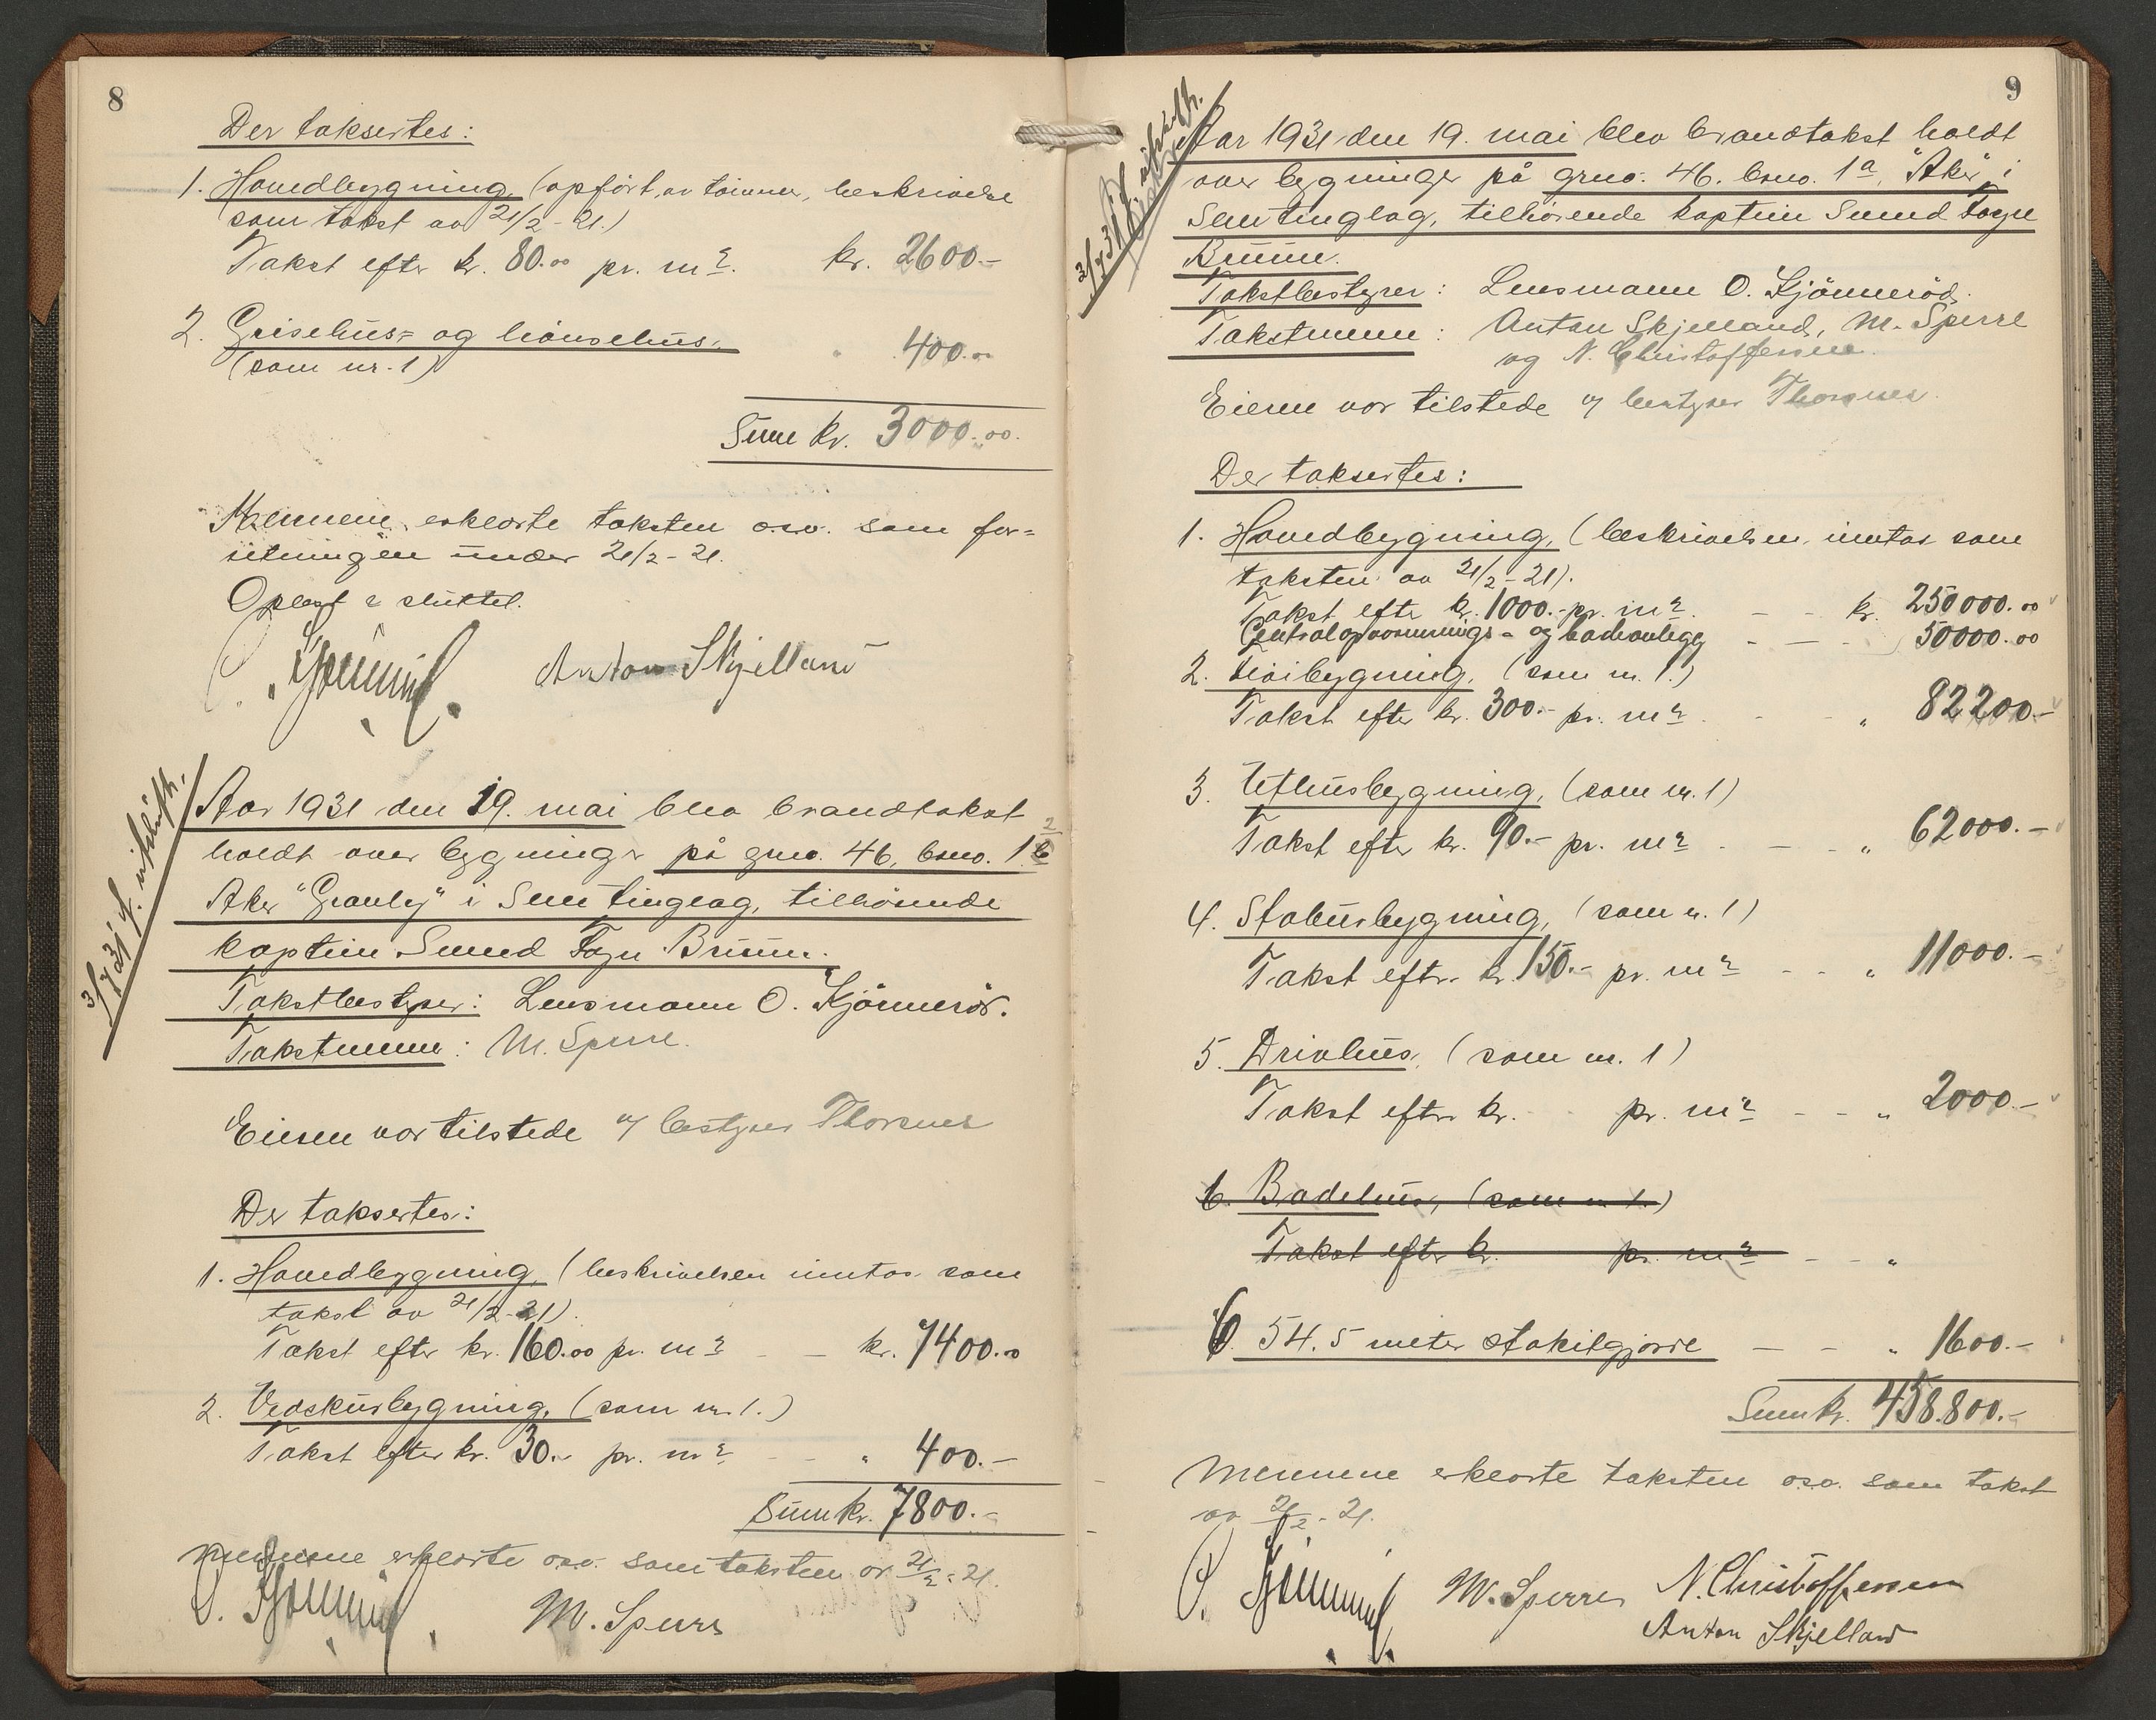 8
Der taksertes:
1. Hovedbygning, (opført av tømmer, beskrivelse
som takst av 21/2-21.)
Takst efter kr. 80.00 pr. m². kr. 2600.-
2. Grisehus- og hønsehus. " 400.00
(som nr. 1)
Sum kr. 3000.00.
Mennene erklærte taksten o.s.v. som for-
retningen under 21/2-21.
Oplest & sluttet.
Anton Skjelland
3/7 31 utskift.
Aar 1931 den 19. mai blev brandtakst
holdt over bygninger på grno. 46, bno. 1
Aker "Granly" i Sem tinglag, tilhørende
kaptein Svend Foyn Bruun.
Takstbestyrer: Lensmann O. Kjønnerød.
Takstmenn: M. Sperre.
Eieren var tilstede v/ bestyrer Thorsnes
Der taksertes:
1. Hovedbygning, (beskrivelsen inntas som
takst av 21/2-21).
Takst efter kr. 160.00 pr. m² - - kr. 7400.00
2. Vedskursbygning, (som nr. 1.)
Takst efter kr. 30.- pr. m² - - " 400.-
Sum kr. 7800.-
Mennene erklærte o.s.v. som taksten av 21/2-21.
M. Sperre
9
Aar 1931 den 19. mai blev brandtakst holdt
over bygninger på grno. 46. bno. 1a, "Aker", i
Sem tinglag, tilhørende kaptein Svend Foyn
Bruun.
Takstbestyrer: Lensmann O. Kjønnerød.
Takstmenn: Anton Skjelland, M. Sperre
og N. Christoffersen.
Eieren var tilstede v/ bestyrer Thorsnes.
Der taksertes:
1. Hovedbygning, (beskrivelsen inntas som
taksten av 21/2-21).
Takst efter kr. 1000.- pr. m². - - kr. 250000.00
Centralopvarmnings- og badeanlegg - - - 50000.00
2. Sivibygning, (som nr. 1.)
Takst efter kr. 300.- pr. m² - - " 82200.-
3. Uthusbygning, (som nr. 1)
Takst efter kr. 90.- pr. m² - - " 62000.-
4. Stabursbygning, (som nr. 1)
Takst efter kr. 150.- pr. m² - - " 11000.-
5. Drivhus, (som nr. 1)
Takst efter kr. pr. m² - - " 2000.-
6. Badehus, (som nr. 1.)
Takst efter kr. pr. m² - - "
6. 54.5 meter stakitgjerde - - " 1600.-
Sum kr. 458.800.-
Mennene erklærte taksten o.s.v. som takst
av 21/2-21.
M. Sperre N. Christoffersen
Anton Skjelland